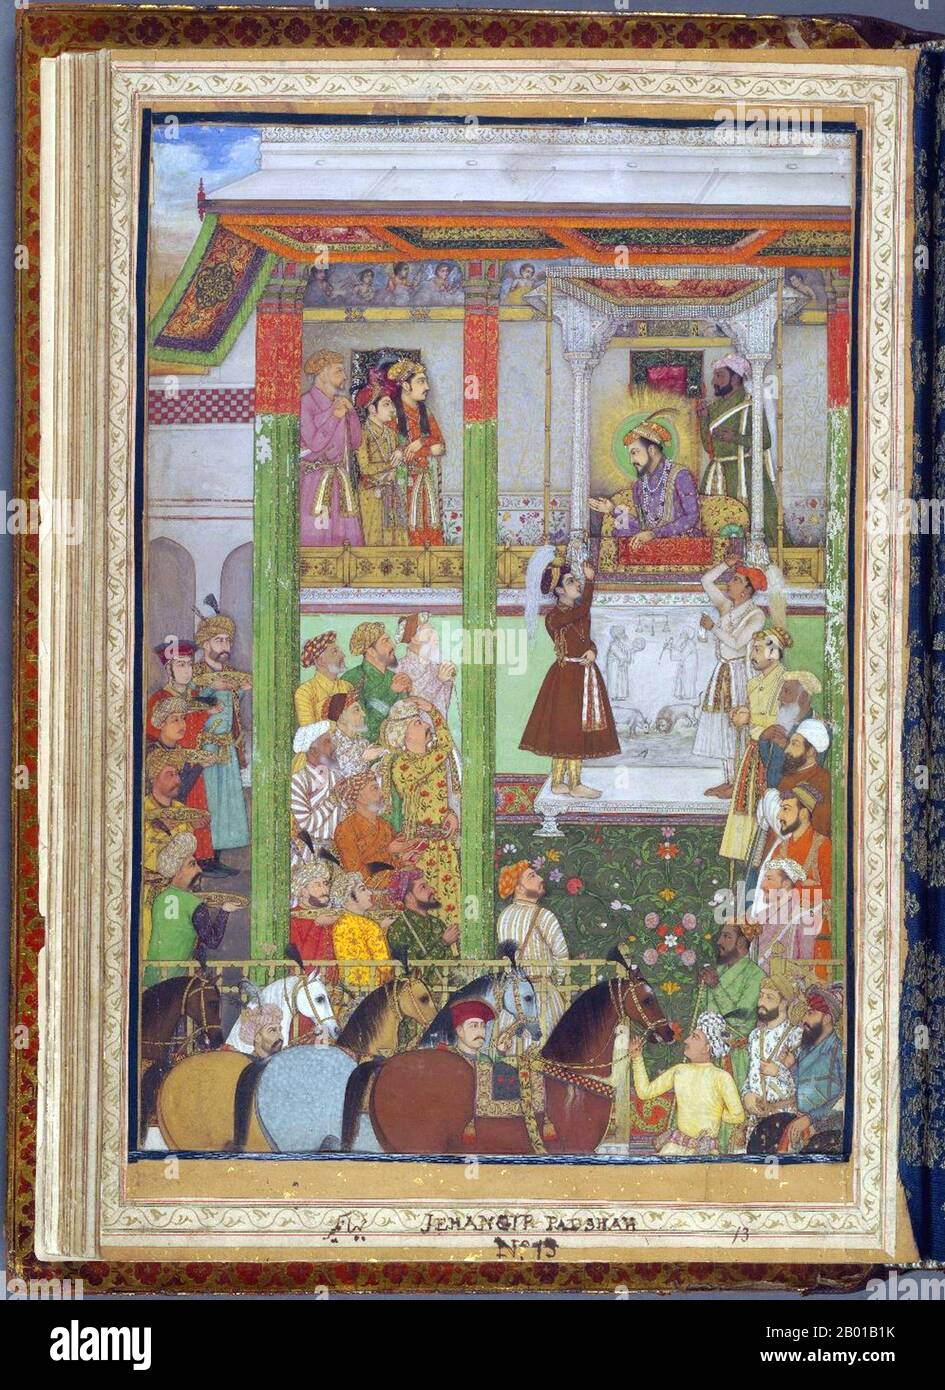 JEHANGIR PADSHAH
Nº. 13
13
alamy
Image ID: 2B01B1K
www.alamy.com